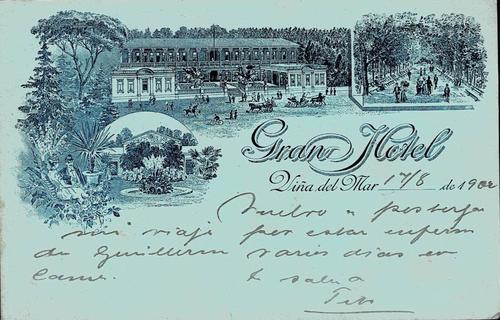 Gran Hotel
Viña del Mar 17/8 de 1902
Vuelvo a postergar
mi viaje por estar enferm
de Guillerm varios dias en
cama. te saluda
Tito